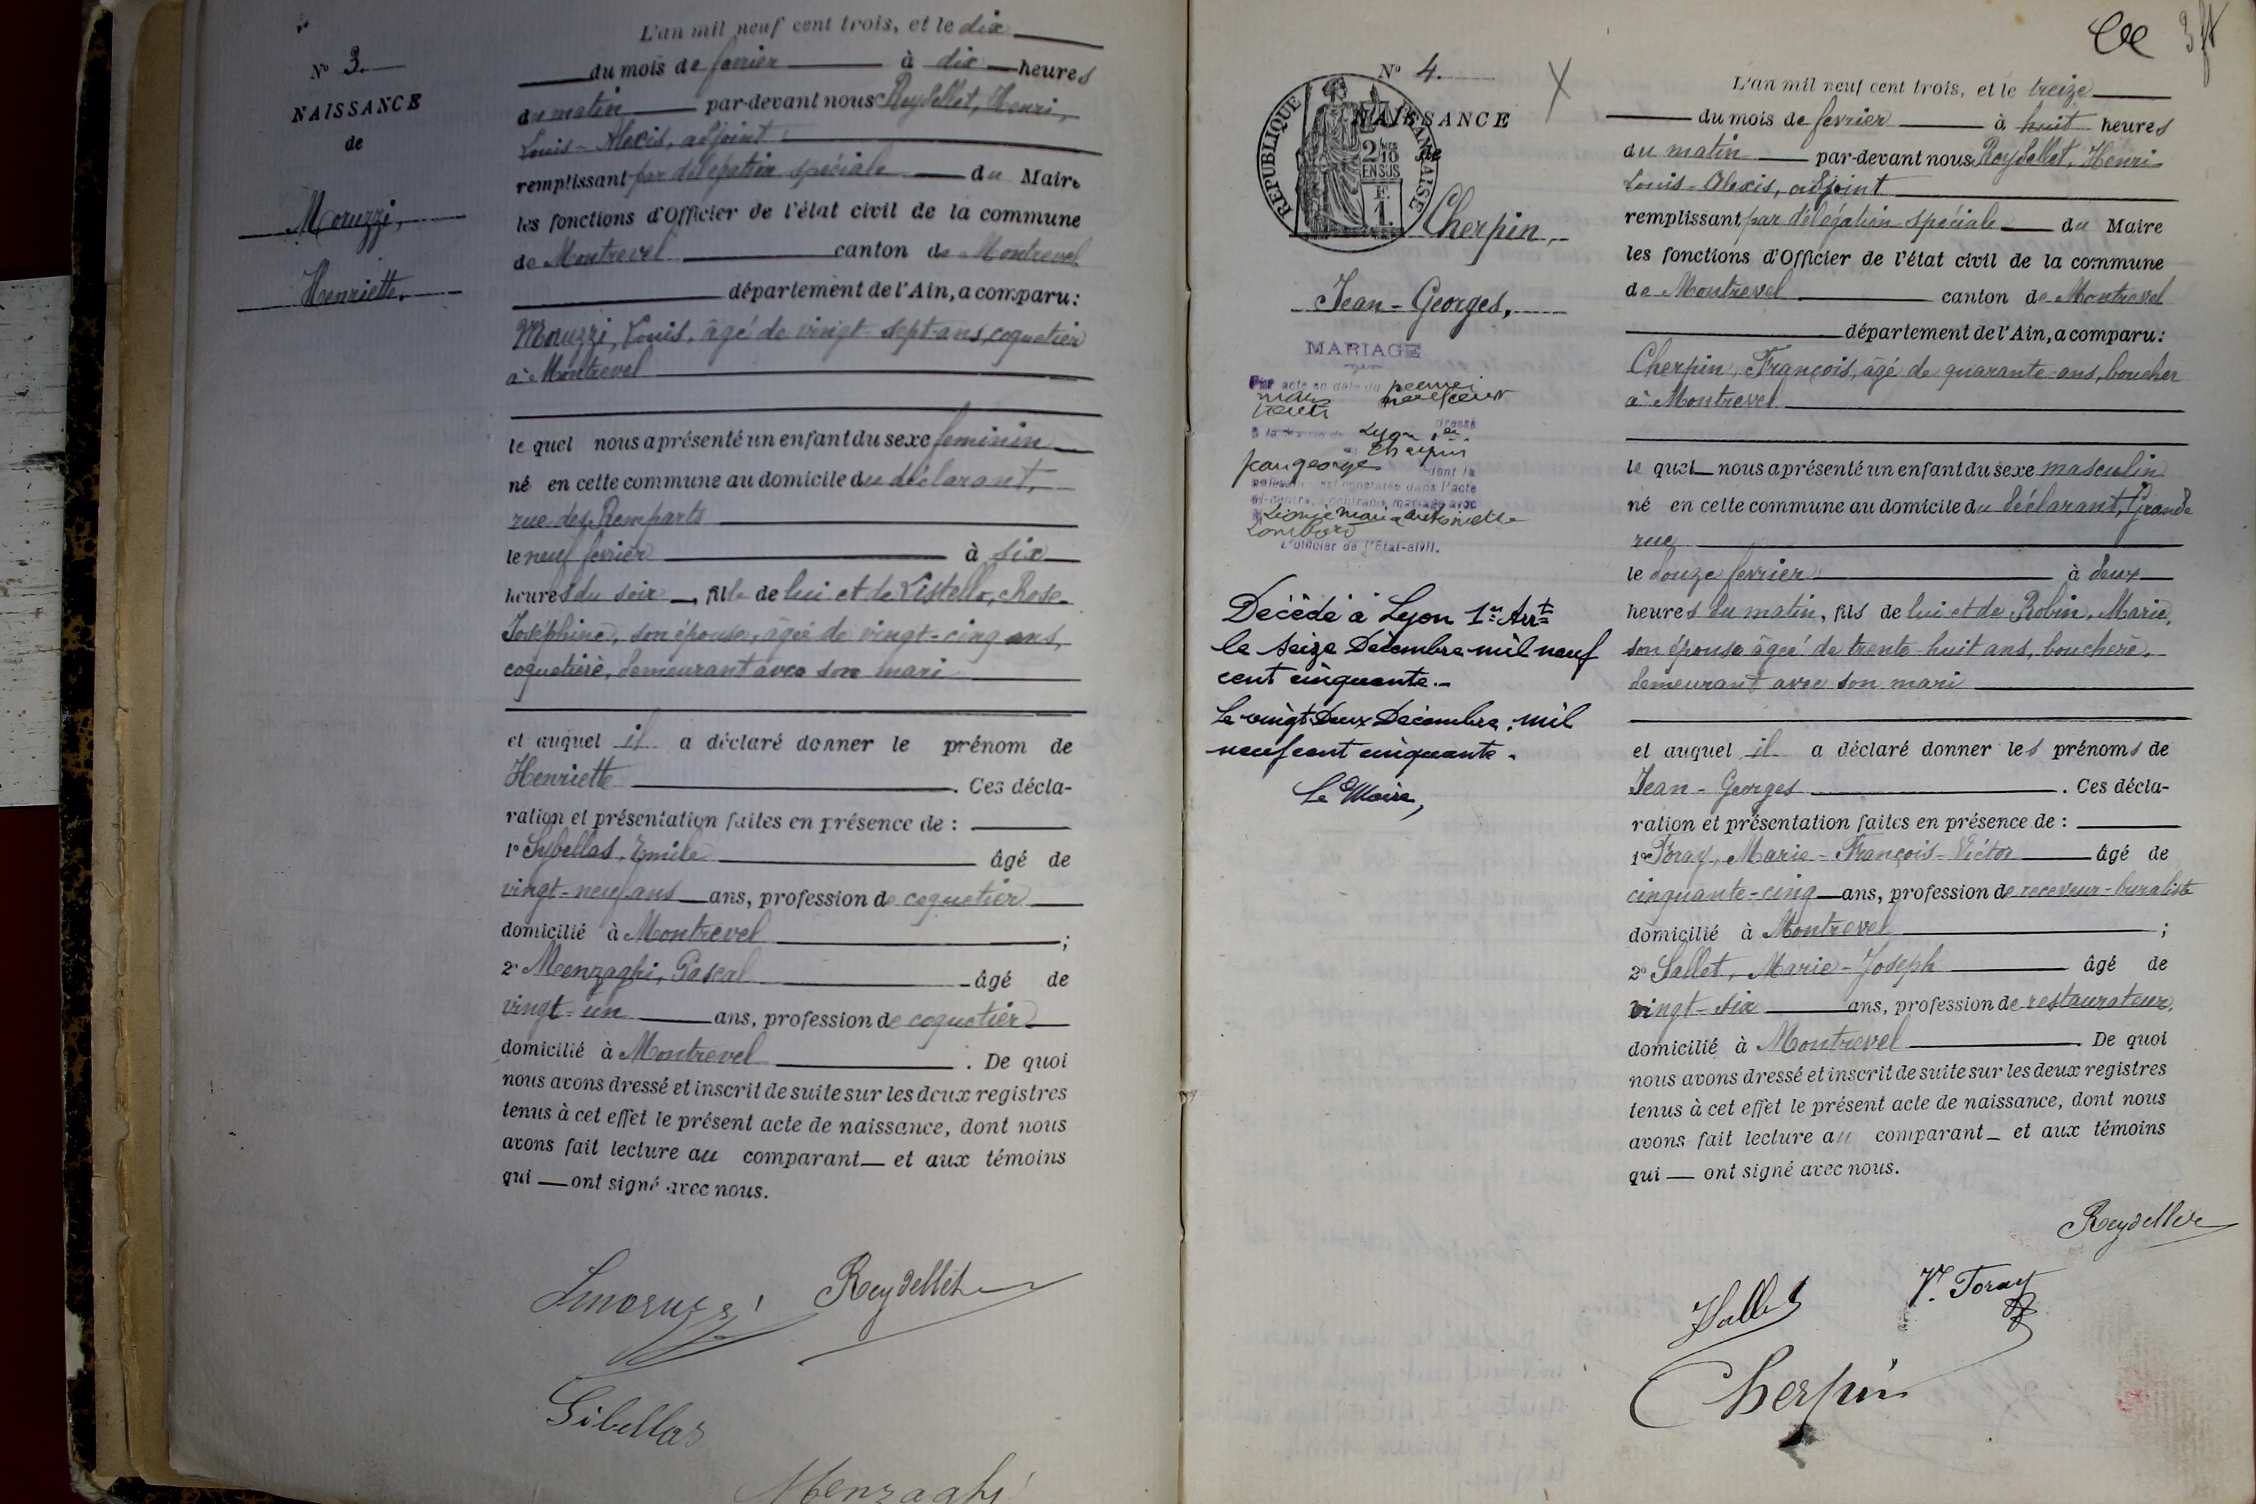 L'an mil neuf cent trois, et le dix
N° 3.
du mois de fevrier à dix heures
NAISSANCE
du matin par-devant nous Reydellet, Henri,
de
Louis-Alexis, adjoint
remplissant par délégation spéciale du Maire
Moruzzi,
les fonctions d'Officier de l'état civil de la commune
de Montrevel canton de Montrevel
Henriette.
département de l'Ain, a comparu:
Moruzzi, Louis, âgé de vingt-sept ans, coquetier
à Montrevel
le quel nous a présenté un enfant du sexe feminin
né en cette commune au domicile du déclarant,
rue des Remparts
le neuf fevrier à six
heures du soir, fille de lui et de Listello, Rose-
Joséphine, son épouse, âgée de vingt-cinq ans,
coquetière, demeurant avec son mari
et auquel il a déclaré donner le prénom de
Henriette. Ces décla-
ration et présentation faites en présence de :
1° Sybellas, Emile âgé de
vingt-neuf ans ans, profession de coquetier
domicilié à Montrevel ;
2° Menzaghi, Pascal âgé de
vingt-un ans, profession de coquetier
domicilié à Montrevel. De quoi
nous avons dressé et inscrit de suite sur les deux registres
tenus à cet effet le présent acte de naissance, dont nous
avons fait lecture au comparant et aux témoins
qui ont signé avec nous.
Reydellet
Gibellas
Menzaghi
3 ft
N° 4.
NAISSANCE
de
RÉPUBLIQUE FRANÇAISE
2/10 EN SUS
F. 1.
Cherpin,
Jean-Georges.
MARIAGE
Par acte en date du premier
mars neuf cent
trente
dressé
à la mairie de Lyon 1er
Cherpin
Jean georges dont la
naissance est constatée dans l'acte
ci-contre, a contracté mariage avec
Marie Antoinette
Lombard
L'officier de l'État-civil.
Décédé à Lyon 1er Arrt
le seize Décembre mil neuf
cent cinquante.-
Le vingt Deux Décembre, mil
neuf cent cinquante.
Le Maire,
L'an mil neuf cent trois, et le treize
du mois de fevrier à huit heures
du matin par-devant nous Reydellet, Henri
Louis-Alexis, adjoint
remplissant par délégation spéciale du Maire
les fonctions d'Officier de l'état civil de la commune
de Montrevel canton de Montrevel
département de l'Ain, a comparu:
Cherpin, François, âgé de quarante ans, boucher
à Montrevel
le quel nous a présenté un enfant du sexe masculin
né en cette commune au domicile du déclarant, Grande
rue
le douze fevrier à deux
heures du matin, fils de lui et de Robin, Marie,
son épouse âgée de trente huit ans, bouchère,
demeurant avec son mari
et auquel il a déclaré donner les prénoms de
Jean-Georges. Ces décla-
ration et présentation faites en présence de :
1° Foray, Marie-François-Victor âgé de
cinquante-cinq ans, profession de receveur-buraliste
domicilié à Montrevel ;
2° Sallet, Marie-Joseph âgé de
vingt-six ans, profession de restaurateur,
domicilié à Montrevel. De quoi
nous avons dressé et inscrit de suite sur les deux registres
tenus à cet effet le présent acte de naissance, dont nous
avons fait lecture au comparant et aux témoins
qui ont signé avec nous.
Reydellet
V. Foray
Sallet
Cherpin